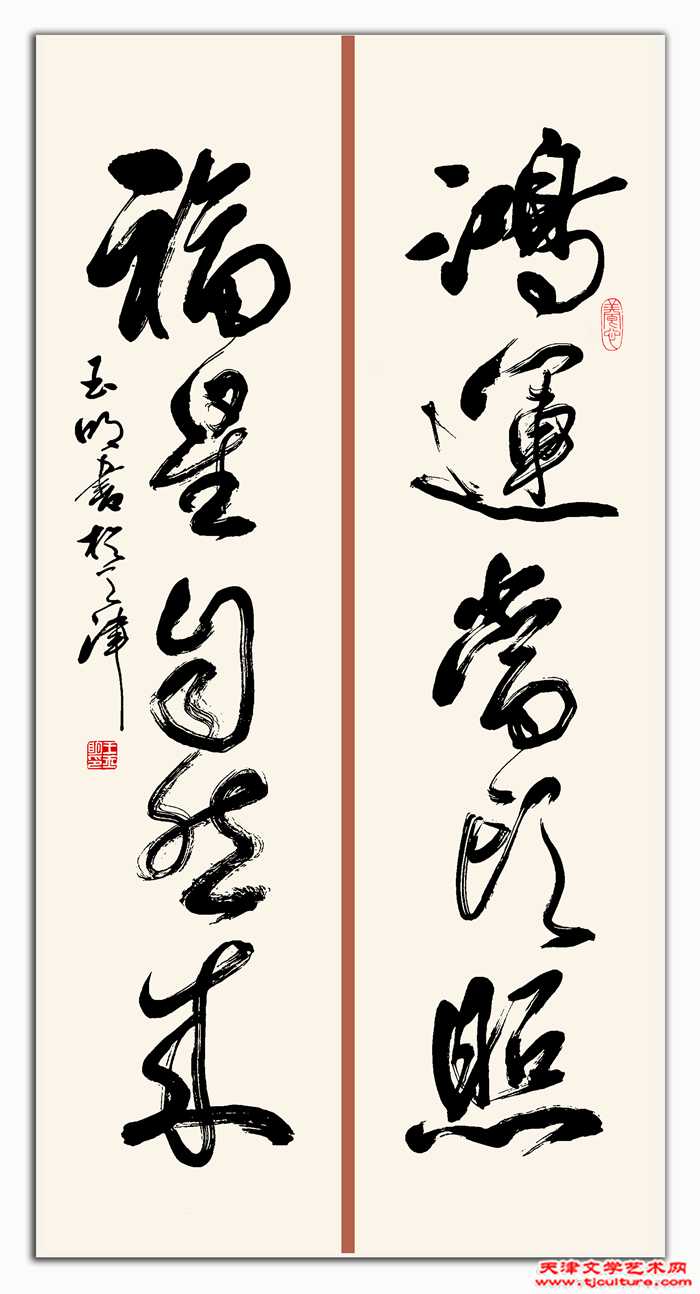 鴻運當頭照
福星自然来
玉明書於天津
天津文学艺术网
www.tjculture.com